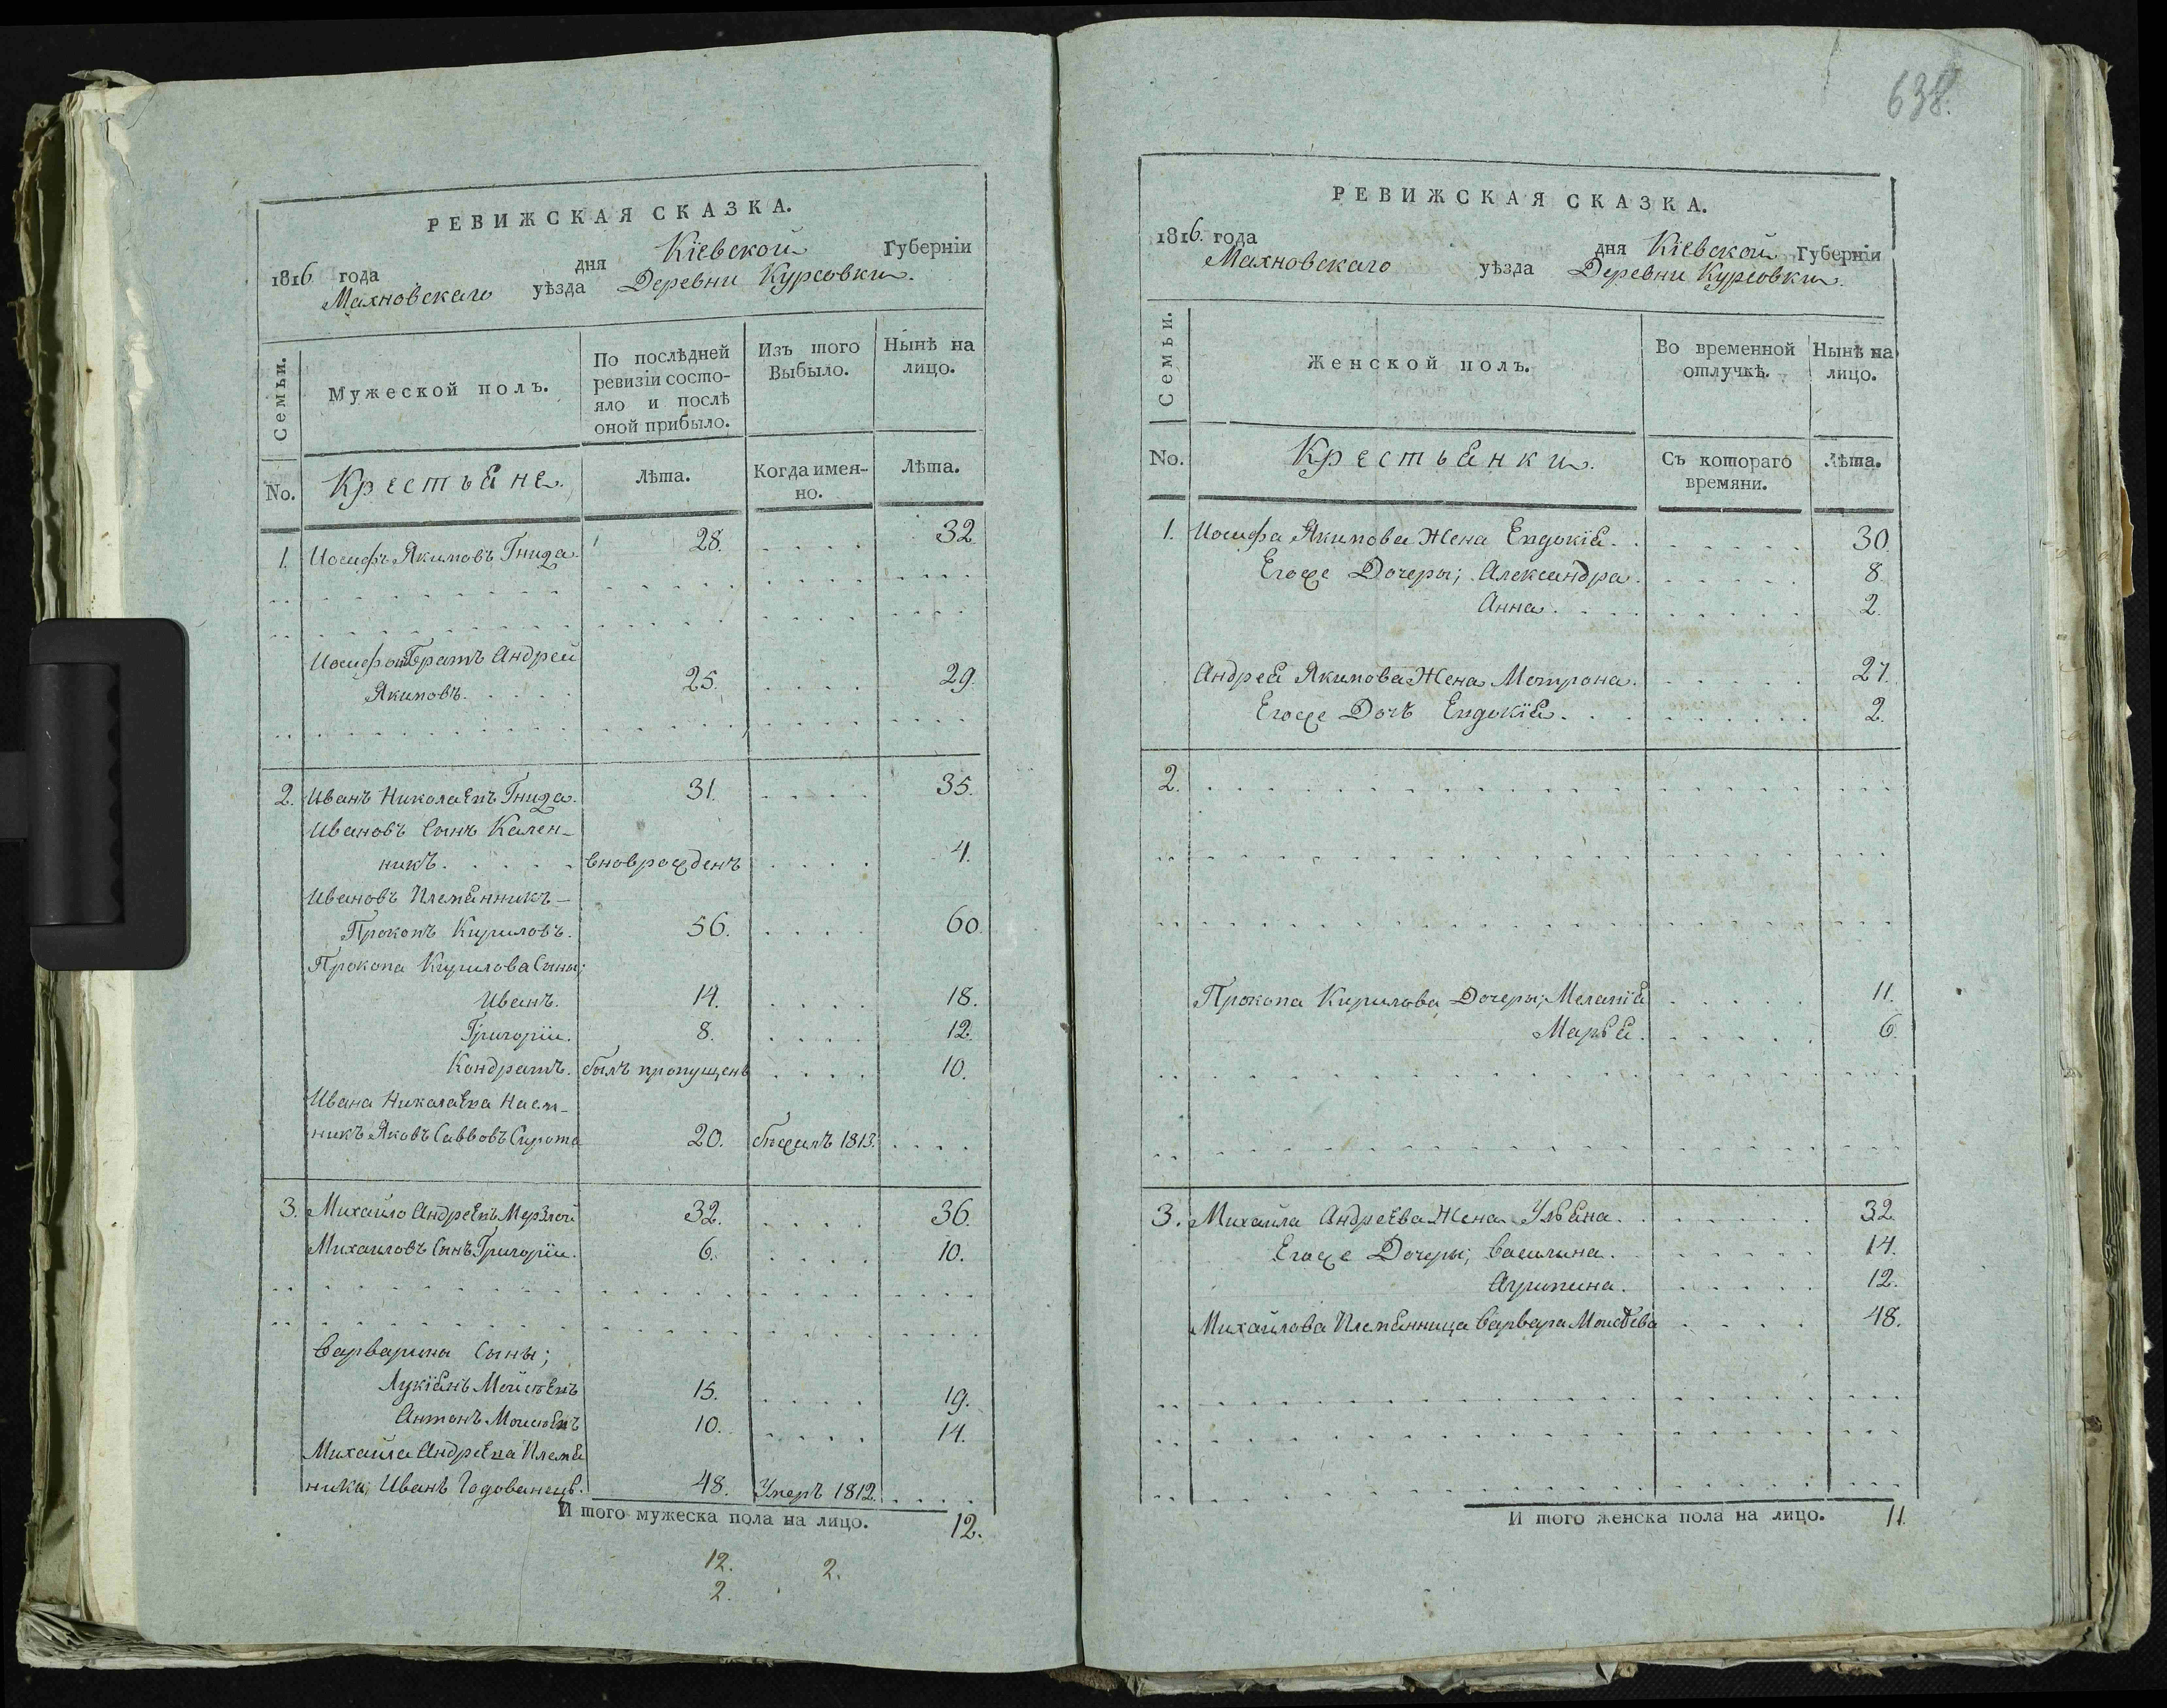 РЕВИЖСКАЯ СКАЗКА.
1816 года дня Кіевской Губерніи
Махновскаго уѣзда Деревни Курсовки.
Семьи.
Мужеской полъ.
По послѣдней
ревизіи состо-
яло и послѣ
оной прибыло.
Изъ того
Выбыло.
Нынѣ на
лицо.
No.
Крестьяне.
Лѣта.
Когда имен-
но.
Лѣта.
1. Иосифъ Якимовъ Гнида. 28. 32
Иосифовъ Братъ Андрей
Якимовъ. 25. 29.
2. Иванъ Николаевъ Гнида. 31. 35.
Ивановъ Сынъ Кален-
никъ. вноврожденъ 4.
Ивановъ Племянникъ
Прокопъ Кириловъ. 56. 60.
Прокопа Кирилова Сыны;
Иванъ. 14. 18.
Григорій. 8. 12.
Кондратъ. былъ пропущенъ 10.
Ивана Николаева Наем-
никъ Яковъ Саввовъ Сирота 20. бѣжалъ 1813.
3. Михайло Андреевъ Мерзлой 32. 36.
Михаиловъ Сынъ Григорій. 6. 10.
Варварина Сыны;
Лукіянъ Мойсѣевъ 15. 19.
Антонъ Моисѣевъ 10. 14.
Михайла Андреева Племя
ника, Иванъ Годованецъ. 48. Умеръ 1812.
И того мужеска пола на лицо. 12.
12. 2.
2.
638.
РЕВИЖСКАЯ СКАЗКА.
1816. года дня Кіевской Губерніи
Махновскаго уѣзда Деревни Курсовки.
Семьи.
Женской полъ.
Во временной
отлучкѣ.
Нынѣ на
лицо.
No.
Крестьянки.
Съ котораго
времяни.
Лѣта.
1. Иосифа Якимова Жена Евдокія. 30.
Егоже Дочеры; Александра. 8
Анна. 2.
Андрея Якимова Жена Мотрона. 27.
Егоже Дочь Евдокія. 2.
2.
Прокопа Кирилова Дочеры; Меланія 11.
Марья. 6.
3. Михаила Андреева Жена Ульяна. 32
Егоже Дочеры; Василина. 14.
Агрипина. 12.
Михайлова Племянница Варвара Моисѣева 48.
И того женска пола на лицо. 11.